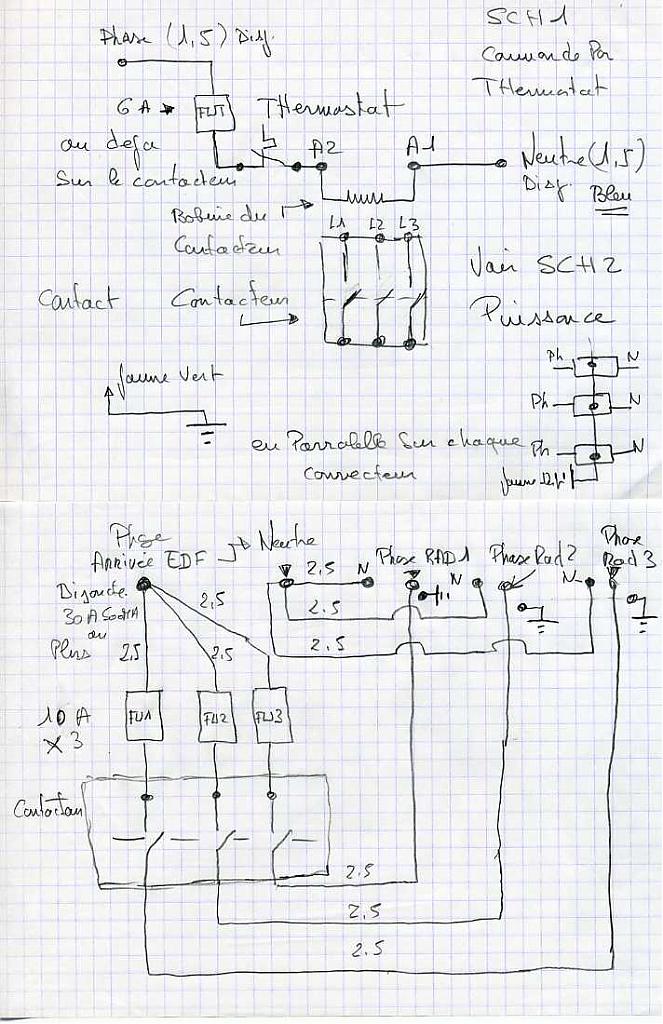 SCH1
Commande Par
THermostat
Phase (1,5) Disj.
6 A
FU1
THermostat
ou deja
Sur le contacteur
A2
A1
Neutre (1,5)
Disj.
Bleu
Bobine du
Contacteur
L1 L2 L3
Voir SCH2
Puissance
Contact Contacteur
Jaune Vert
Ph N
Ph N
Ph N
en Parralelle Sur chaque
connecteur
Phase
Arrivée EDF
Neutre
Phase RAD1
Phase Rad 2
Phase
Rad 3
2,5 N
N
N
30A 500MA
ou
Plus
2,5
2,5
2,5
2,5
2,5
10 A
X 3
FU1
FU2
FU3
Contacteur
2.5
2.5
2.5